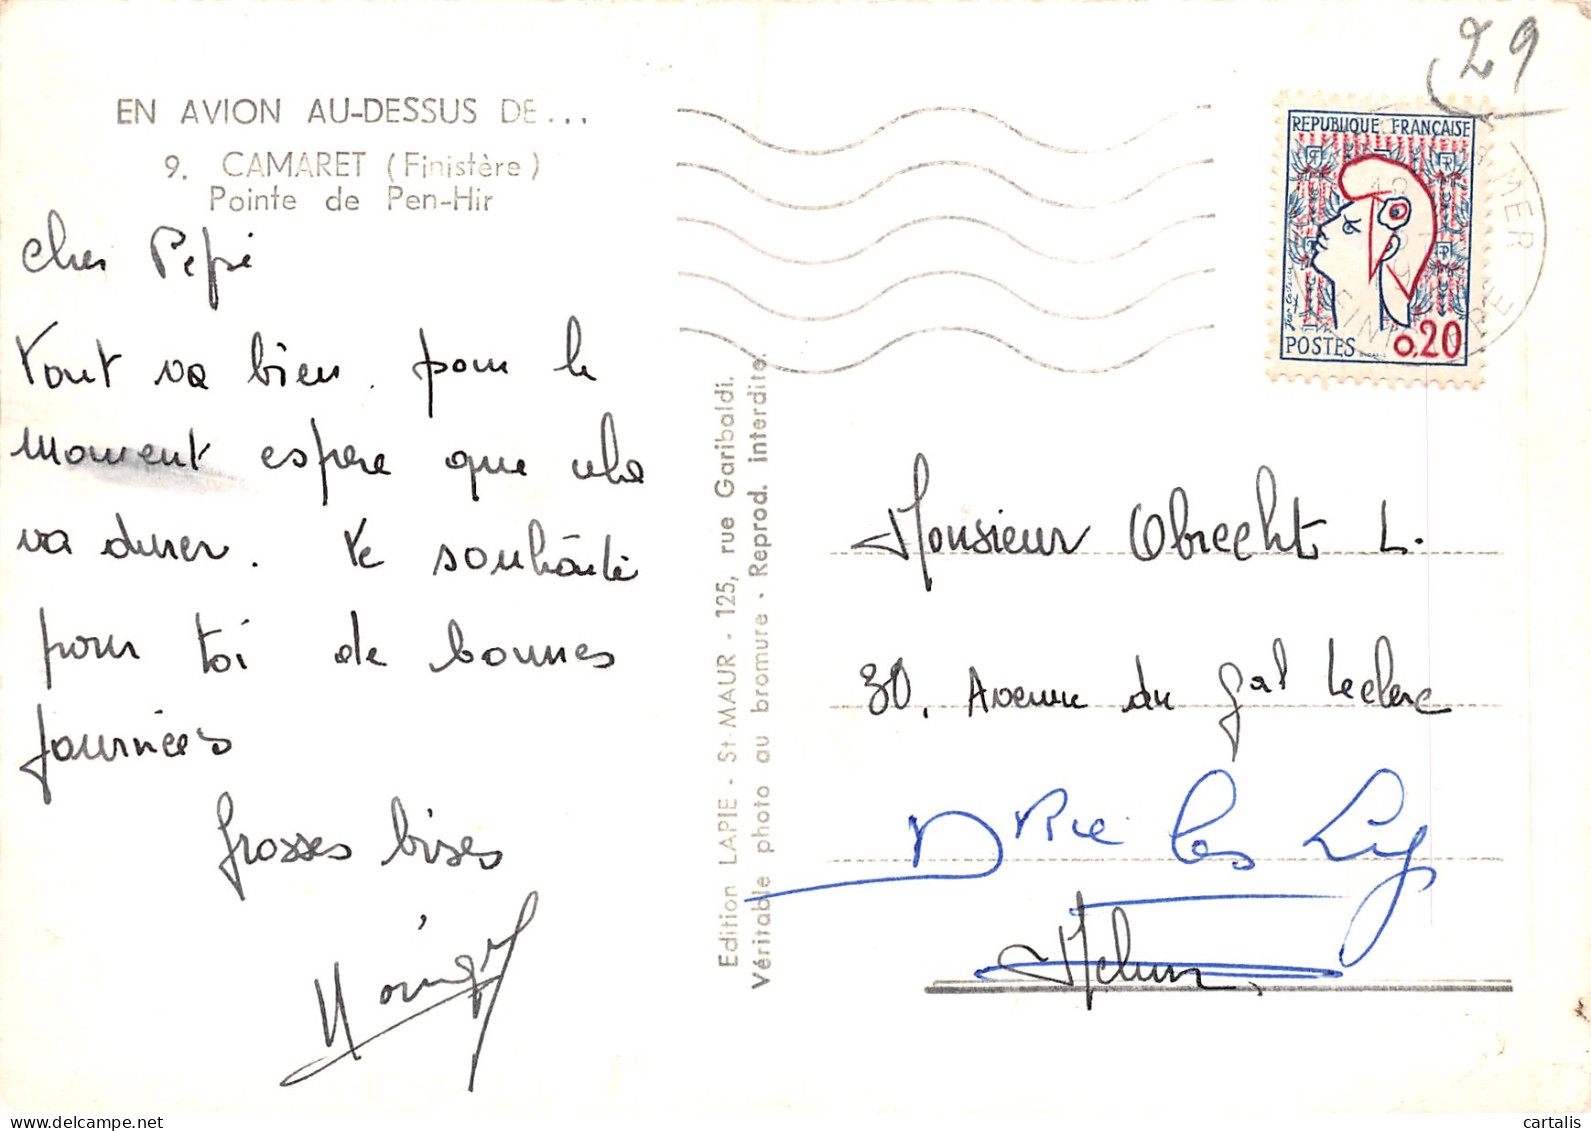 EN AVION AU-DESSUS DE...
9. CAMARET (Finistère)
Pointe de Pen-Hir
Cher Pépé
Tout va bien. pour le
moment espere que cela
va durer. Te souhaite
pour toi de bonnes
journées
Grosses bises
Edition LAPIE - St-MAUR - 125, rue Garibaldi.
Véritable photo au bromure - Reprod. interdite.
29
REPUBLIQUE FRANÇAISE
POSTES
0,20
MER
Monsieur Obrecht L.
30, Avenue du Gal Leclerc
les Lys
Melun
cartalis